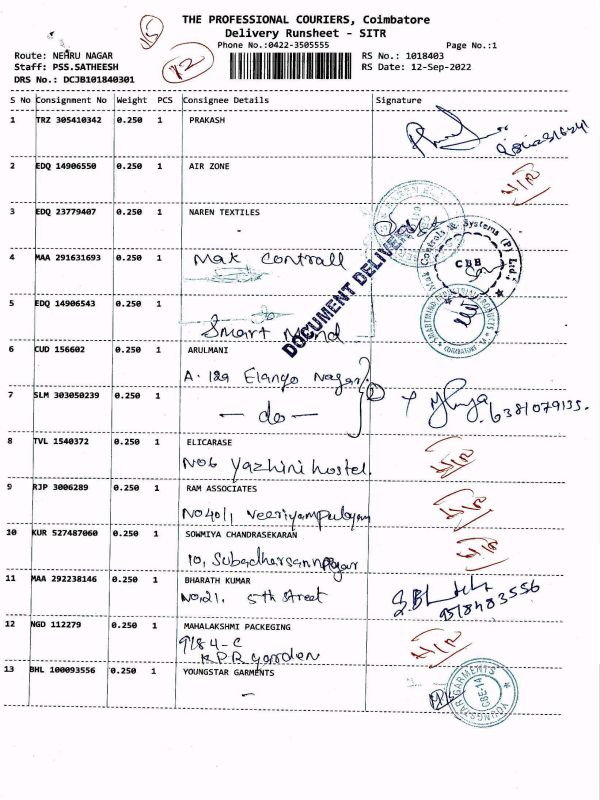 THE PROFESSIONAL COURIERS, Coimbatore
Delivery Runsheet - SITR
Phone No.:0422-3505555 Page No.:1
Route: NEHRU NAGAR RS No.: 1018403
Staff: PSS.SATHEESH RS Date: 12-Sep-2022
DRS No.: DCJB101840301
15
12
S No Consignment No Weight PCS Consignee Details Signature
1 TRZ 305410342 0.250 1 PRAKASH
2 EDQ 14906550 0.250 1 AIR ZONE
3 EDQ 23779407 0.250 1 NAREN TEXTILES
-
4 MAA 291631693 0.250 1 Mak Contrall
Mak Controls & Systems (P) Ltd.
CBB
DOCUMENT DELIVER
5 EDQ 14906543 0.250 1
Smart Mind
COIMBATORE
6 CUD 156602 0.250 1 ARULMANI
A. 129 Elango Nagar
2
7 SLM 303050239 0.250 1 - do -
6381079135.
8 TVL 1540372 0.250 1 ELICARASE
No 6 Yazhini hostel.
9 RJP 3006289 0.250 1 RAM ASSOCIATES
No 40/1 Veeriyampalayam
10 KUR 527487060 0.250 1 SOWMIYA CHANDRASEKARAN
10, Subadharsannagar
11 MAA 292238146 0.250 1 BHARATH KUMAR
No:21, 5th street
12 NGD 112279 0.250 1 MAHALAKSHMI PACKEGING
9/84-C
K.P.R garden
13 BHL 100093556 0.250 1 YOUNGSTAR GARMENTS
-
YOUNGSTAR GARMENTS
CBE-14